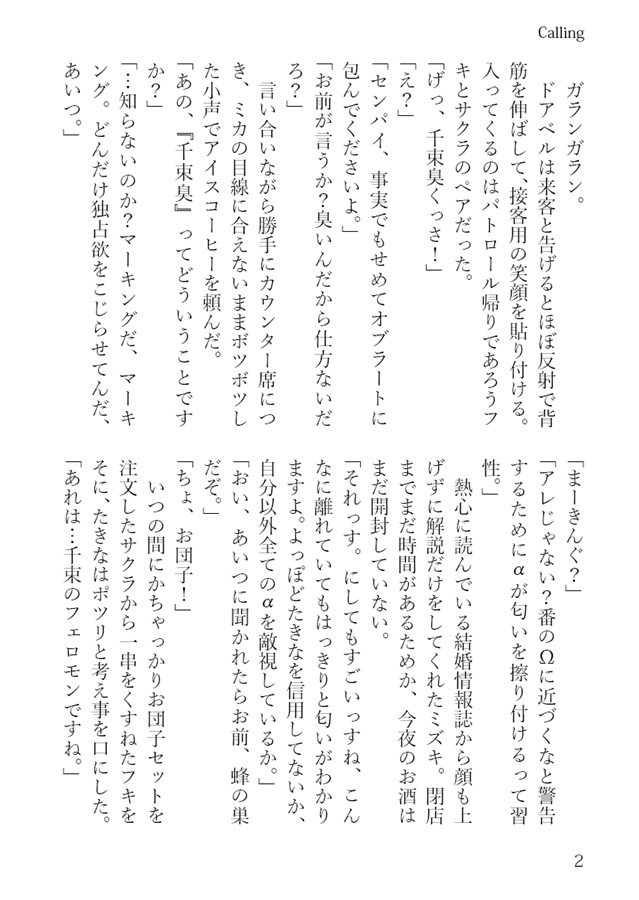 Calling
ガランガラン。
ドアベルは来客と告げるとほぼ反射で背
筋を伸ばして、接客用の笑顔を貼り付ける。
入ってくるのはパトロール帰りであろうフ
キとサクラのペアだった。
「げっ、千束臭くっさ！」
「え？」
「センパイ、事実でもせめてオブラートに
包んでくださいよ。」
「お前が言うか？臭いんだから仕方ないだ
ろ？」
言い合いながら勝手にカウンター席につ
き、ミカの目線に合えないままボツボツし
た小声でアイスコーヒーを頼んだ。
「あの、『千束臭』ってどういうことです
か？」
「…知らないのか？マーキングだ、マーキ
ング。どんだけ独占欲をこじらせてんだ、
あいつ。」
「まーきんぐ？」
「アレじゃない？番のΩに近づくなと警告
するためにαが匂いを擦り付けるって習
性。」
熱心に読んでいる結婚情報誌から顔も上
げずに解説だけをしてくれたミズキ。閉店
までまだ時間があるためか、今夜のお酒は
まだ開封していない。
「それっす。にしてもすごいっすね、こん
なに離れていてもはっきりと匂いがわかり
ますよ。よっぽどたきなを信用してないか、
自分以外全てのαを敵視しているか。」
「おい、あいつに聞かれたらお前、蜂の巣
だぞ。」
「ちょ、お団子！」
いつの間にかちゃっかりお団子セットを
注文したサクラから一串をくすねたフキを
そに、たきなはポツリと考え事を口にした。
「あれは…千束のフェロモンですね。」
2